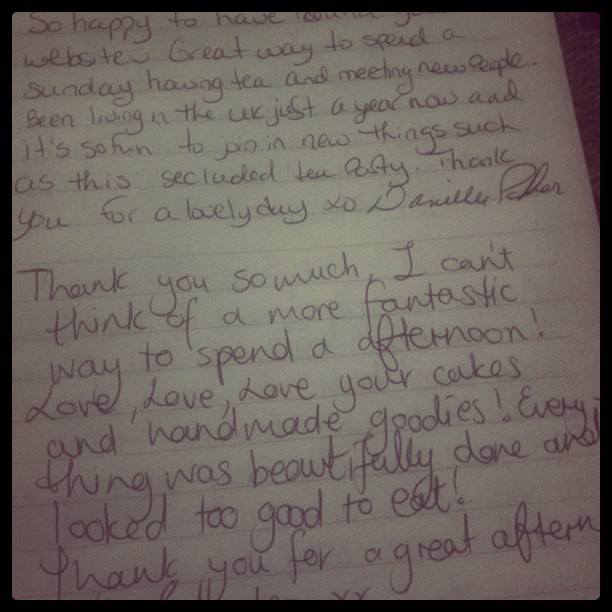 So happy to have found
website. Great way to spend a
sunday having tea and meeting new people.
Been living in the uk just a year now and
it's so fun to join in new things such
as this secluded tea Party. Thank
you for a lovely day xo Danielle
Thank you so much, I can't
think of a more fantastic
way to spend a afternoon!
Love, Love, Love your cakes
and handmade goodies! Every
thing was beautifully done and
looked too good to eat!
Thank you for a great aftern
xx